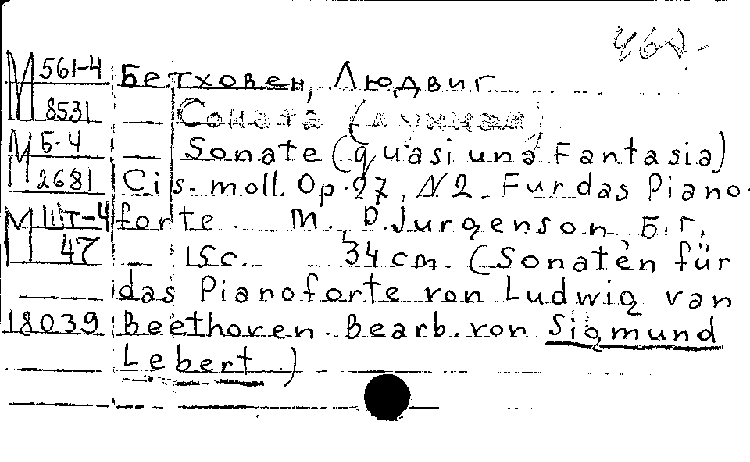 М 561-4 Бетховен, Людвиг
8531 Соната (лунная)
М Б-4 Sonate (quasi una Fantasia)
2681 Cis-moll. Op. 27, N2. Fur das Piano-
М ШТ-4 forte. М., P. Jurgenson Б.Г.
47 15с. 34 cm. (Sonaten für
das Pianoforte von Ludwig van
18039 Beethoven. Bearb. von Sigmund
Lebert)